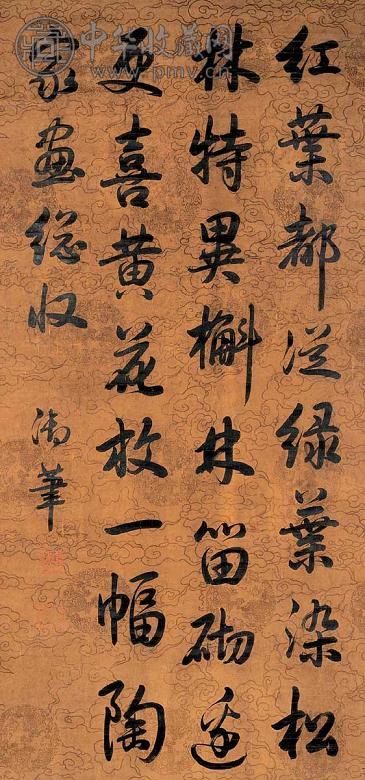 紅葉都從綠葉染松
林特異槲林留砌邊
更喜黄花放一幅陶
家畫總收
御筆
中华收藏网
www.pmv.cn